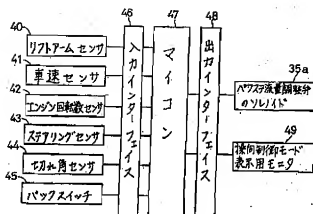 40
リフトアームセンサ
41
車速センサ
42
エンジン回転数センサ
43
ステアリングセンサ
44
切れ角センサ
45
バックスイッチ
46
入力インターフェイス
47
マイコン
48
出力インターフェイス
35a
パワステ流量調整弁
のソレノイド
49
操向制御モード
表示用モニタ